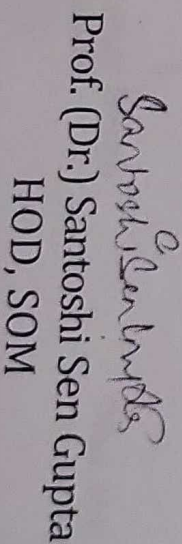 Santoshi Sen Gupta
Prof. (Dr.) Santoshi Sen Gupta
HOD, SOM